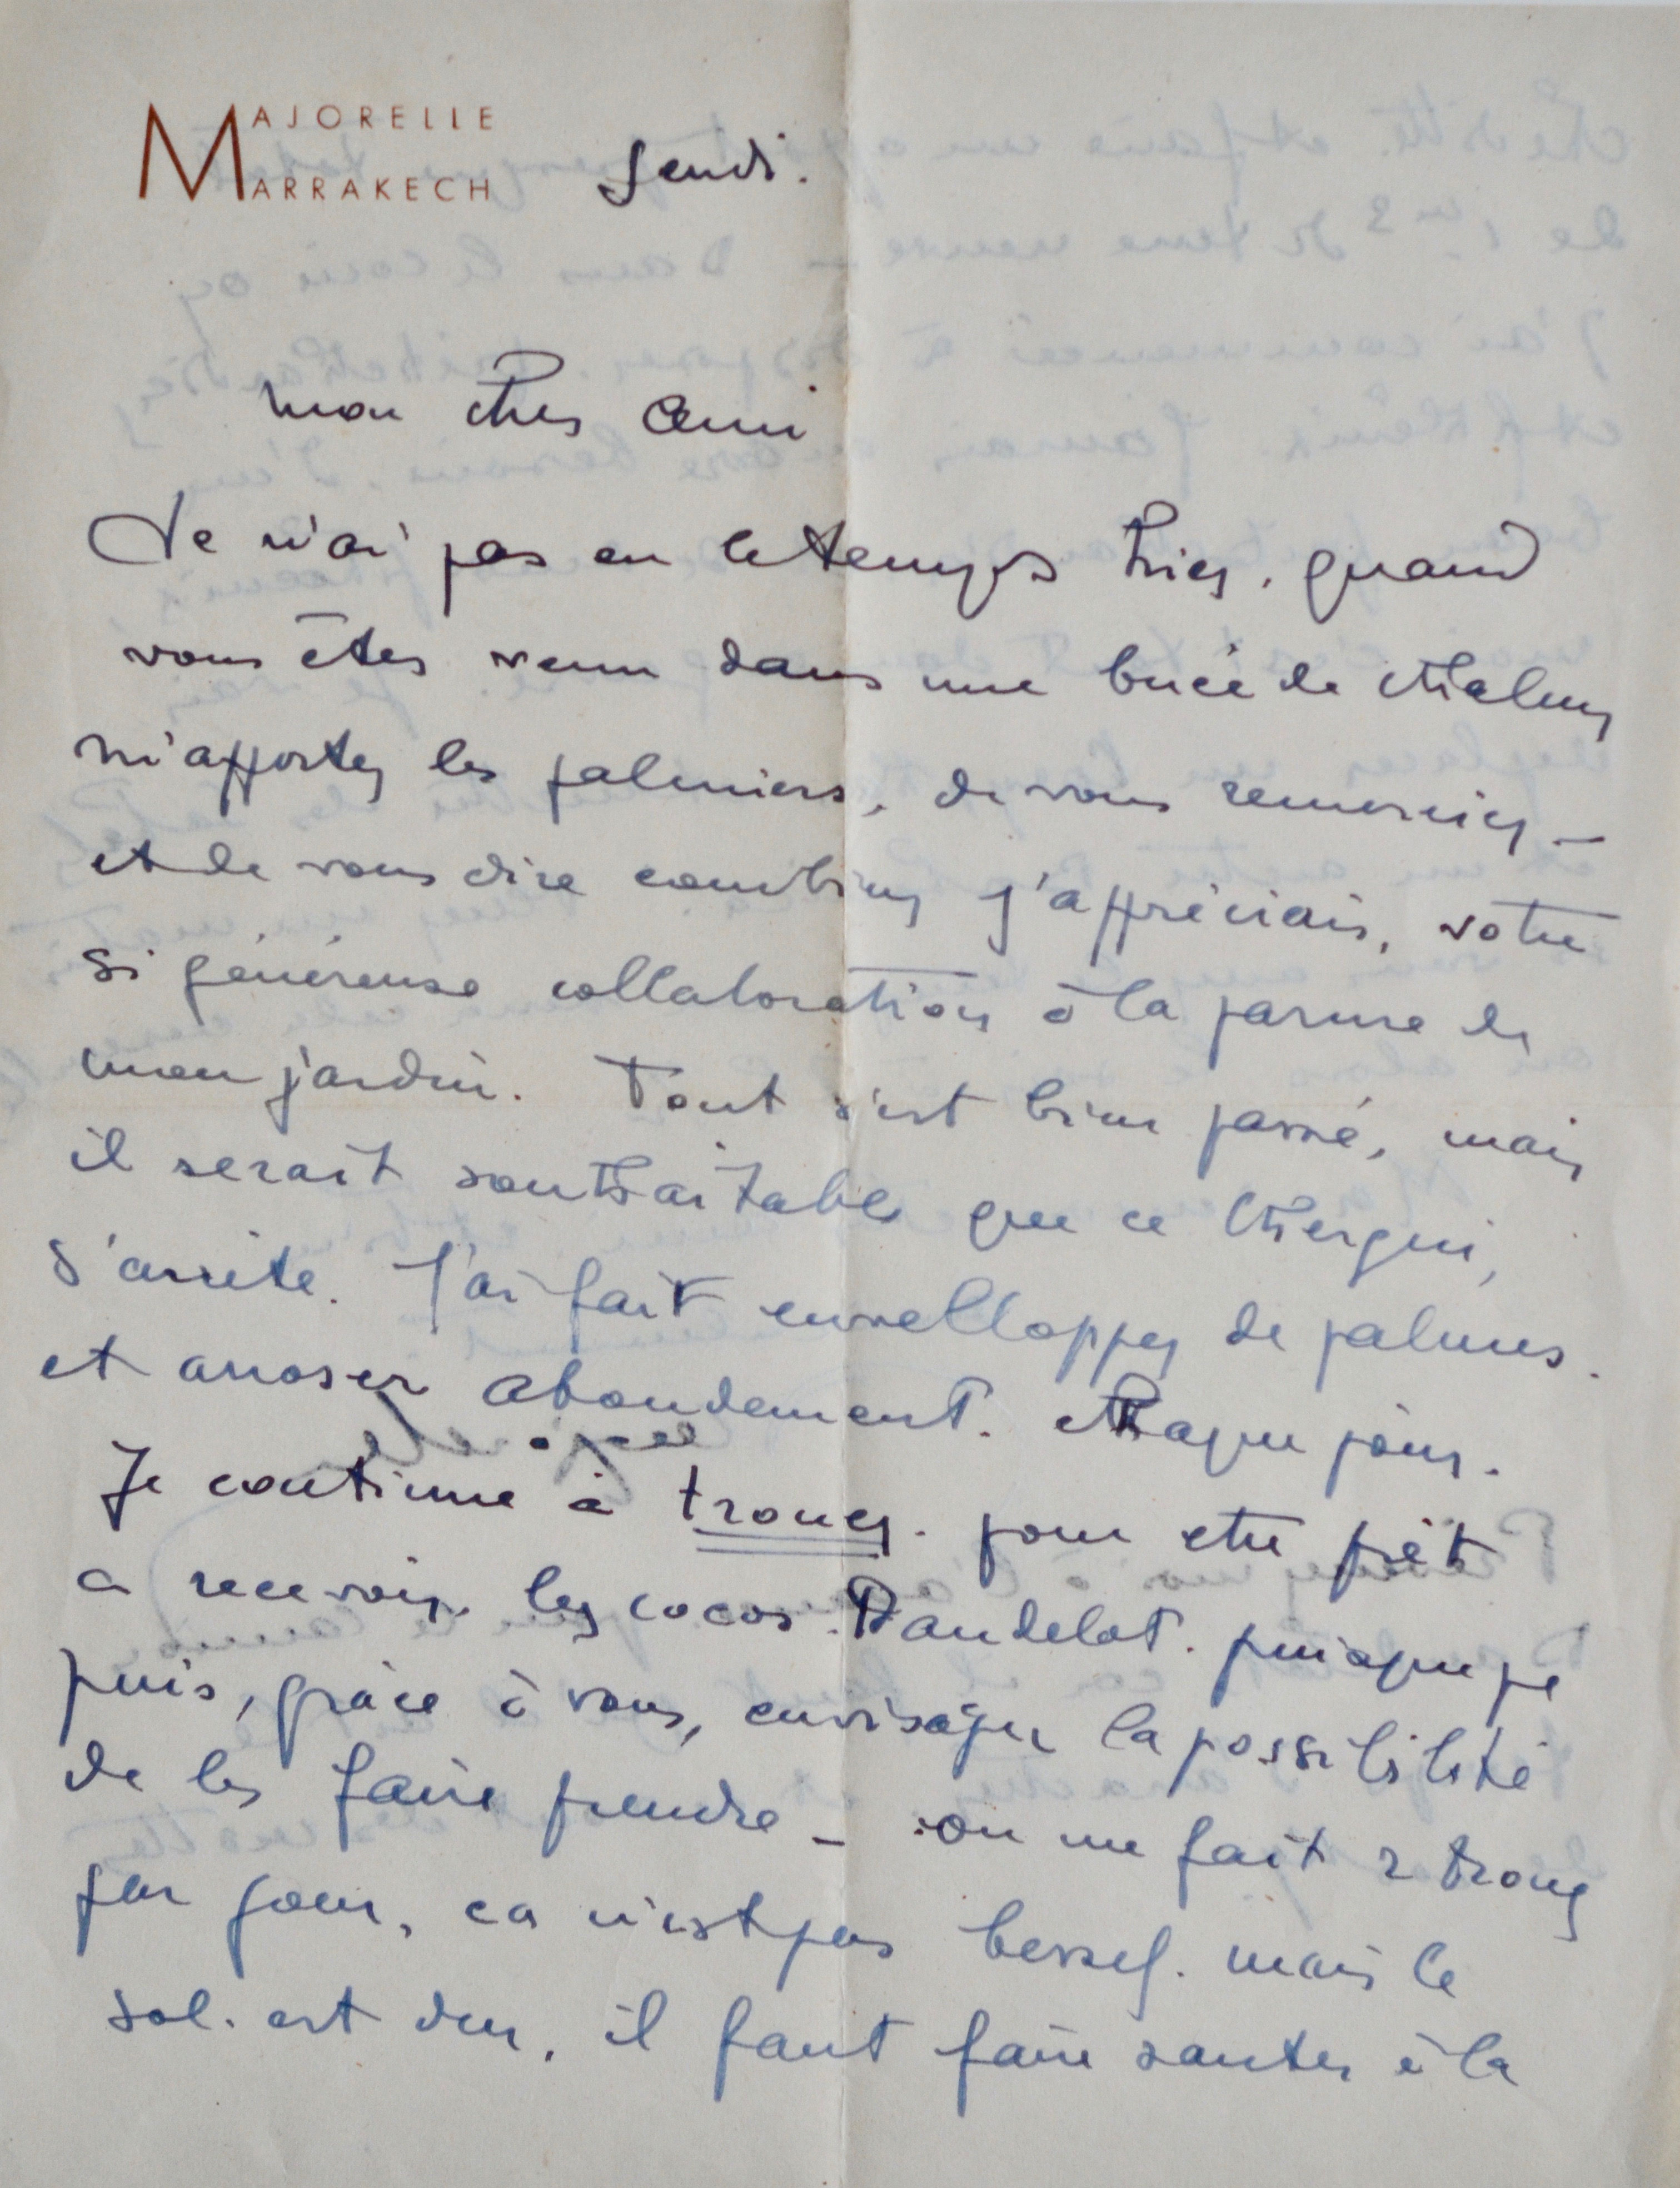 MAJORELLE
MARRAKECH
Jeudi.
mon cher Ami
Je n'ai pas eu le temps hier, quand
vous êtes venu dans une buée de chaleur
m'apporter les palmiers, de vous remercier —
et de vous dire combien j'appréciais, votre
si généreuse collaboration à la parure de
mon jardin. Tout s'est bien passé, mais
il serait souhaitable que ce chergui,
s'arrête. J'ai fait envellopper de palmes.
et arroser abondement. chaque jour.
Je continue à trouer. pour etre prêt
a recevoir les cocos. Dandelot. puisque je
puis, grâce à vous, envisager la possibilité
de les faire prendre — on me fait 2 trous
par jour, ca n'est pas bessef. mais le
sol. est dur, il faut faire sauter à la